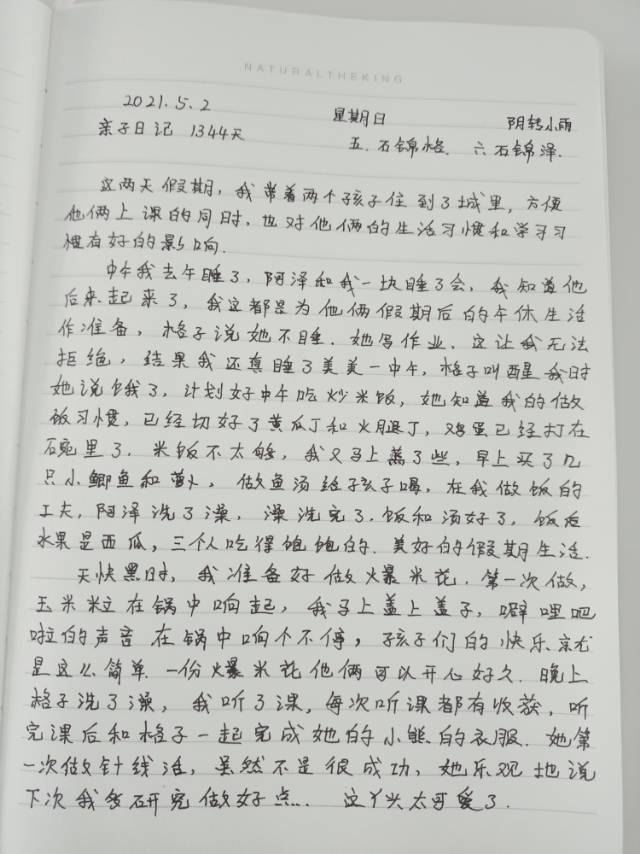 NATURALTHEKING
2021.5.2 星期日 阴转小雨
亲子日记 1344天 五.石锦格. 六石锦泽.
这两天假期，我带着两个孩子住到了城里，方便
他俩上课的同时，也对他俩的生活习惯和学习习
惯有好的影响.
中午我去午睡了，阿泽和我一块睡了会，我知道他
后来起来了，我这都是为他俩假期后的午休生活
作准备，格子说她不睡.她写作业.这让我无法
拒绝，结果我还真睡了美美一中午，格子叫醒我时
她说饿了，计划好中午吃炒米饭，她知道我的做
饭习惯，已经切好了黄瓜丁和火腿丁，鸡蛋已经打在
碗里了.米饭不太够，我又马上蒸了些，早上买了几
只小鲫鱼和萝卜，做鱼汤给孩子喝，在我做饭的
工夫，阿泽洗了澡，澡洗完了.饭和汤好了，饭后
水果是西瓜，三个人吃得饱饱的.美好的假期生活.
天快黑时，我准备好做爆米花.第一次做，
玉米粒在锅中响起，我马上盖上盖子，噼哩吧
啦的声音在锅中响个不停，孩子们的快乐就
是这么简单.一份爆米花他俩可以开心好久.晚上
格子洗了澡，我听了课，每次听课都有收获，听
完课后和格子一起完成她的小熊的衣服.她第
一次做针线活，虽然不是很成功，她乐观地说
下次我多研究做好点... 这丫头太可爱了.